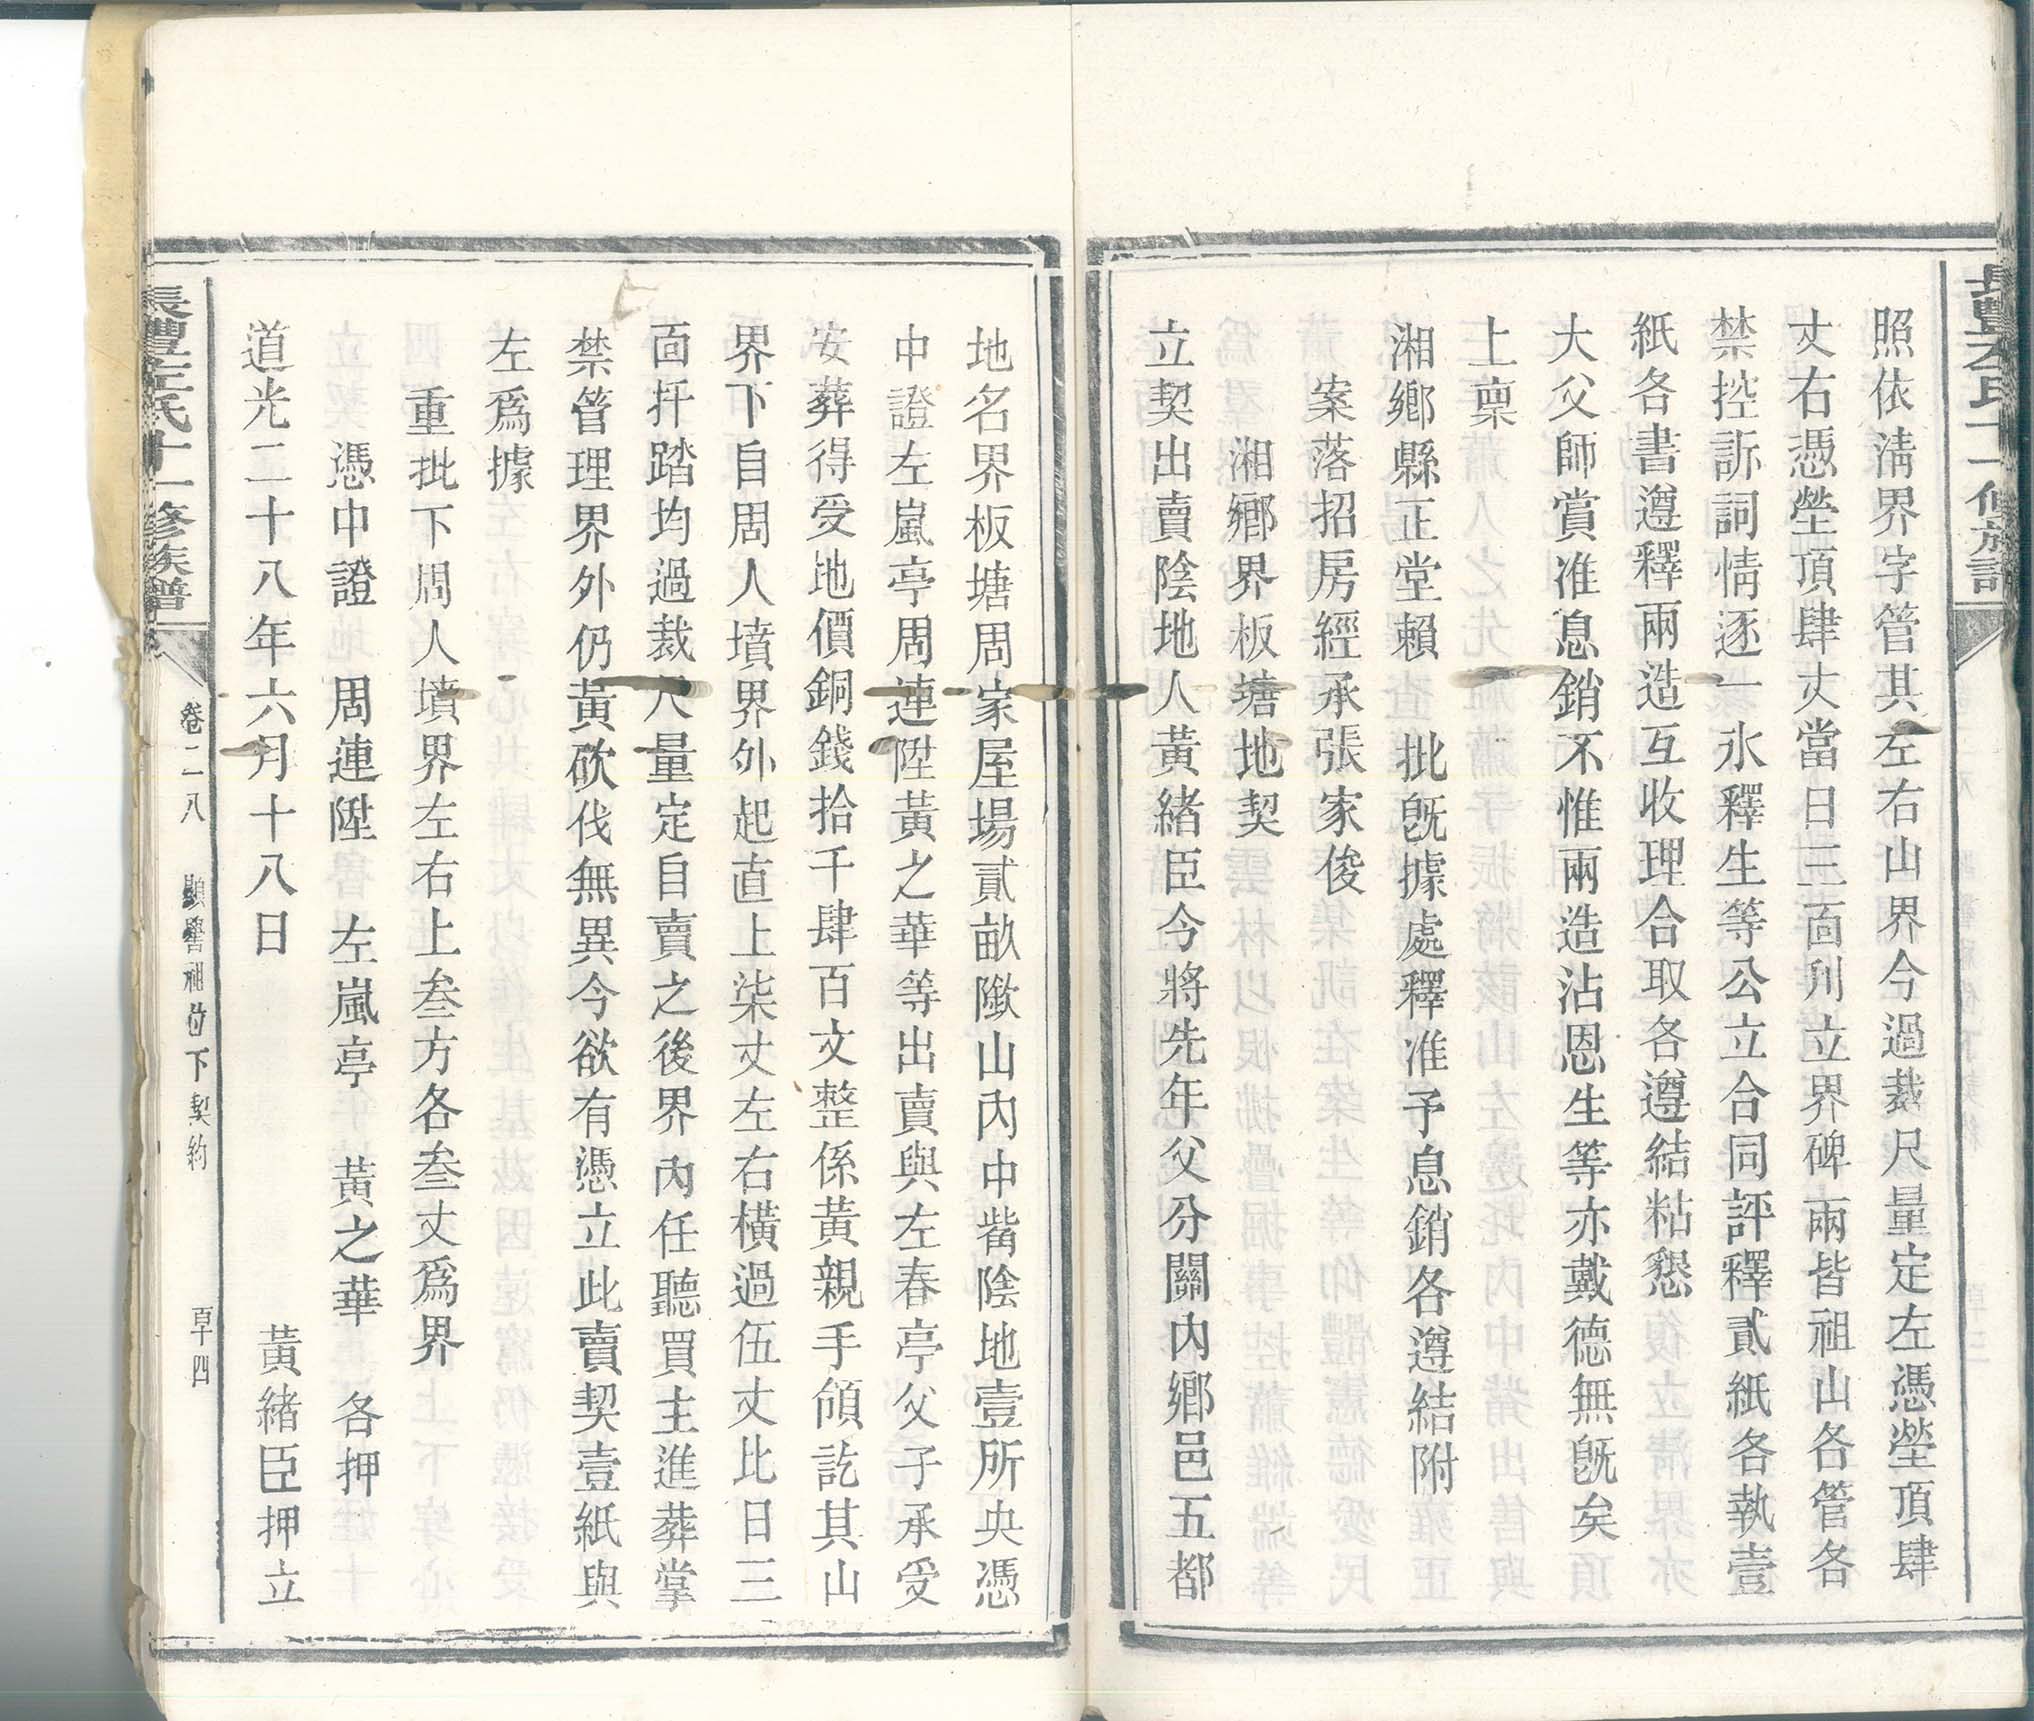 照依淸界字管其左右山界今過裁尺量定左憑塋頂肆
丈右憑塋頂肆丈當日三面刋立界碑兩皆祖山各管各
禁控訴詞情逐一氷釋生等公立合同評釋貳紙各執壹
紙各書遵釋兩造互收理合取各遵結粘懇
大父師賞准息銷不惟兩造沾恩生等亦戴德無旣矣
上稟
湘鄉縣正堂賴　批旣據處釋准予息銷各遵結附
案落招房經承張家俊
湘鄉界板塘地契
立契出賣陰地人黃緒臣今將先年父分關內鄉邑五都
地名界板塘周家屋場貳畝隞山內中嘴陰地壹所央憑
中證左嵐亭周連陞黃之華等出賣與左春亭父子承受
安葬得受地價銅錢拾千肆百文整係黃親手領訖其山
界下自周人墳界外起直上柒丈左右橫過伍丈比日三
面扦踏均過裁尺量定自賣之後界內任聽買主進葬掌
禁管理界外仍黃砍伐無異今欲有憑立此賣契壹紙與
左爲據
重批下周人墳界左右上叁方各叁丈爲界
憑中證　周連陞　左嵐亭　黃之華　各押
道光二十八年六月十八日　黃緒臣押立
左氏十一修族譜
卷二八　顯譽祖位下契約　百十四